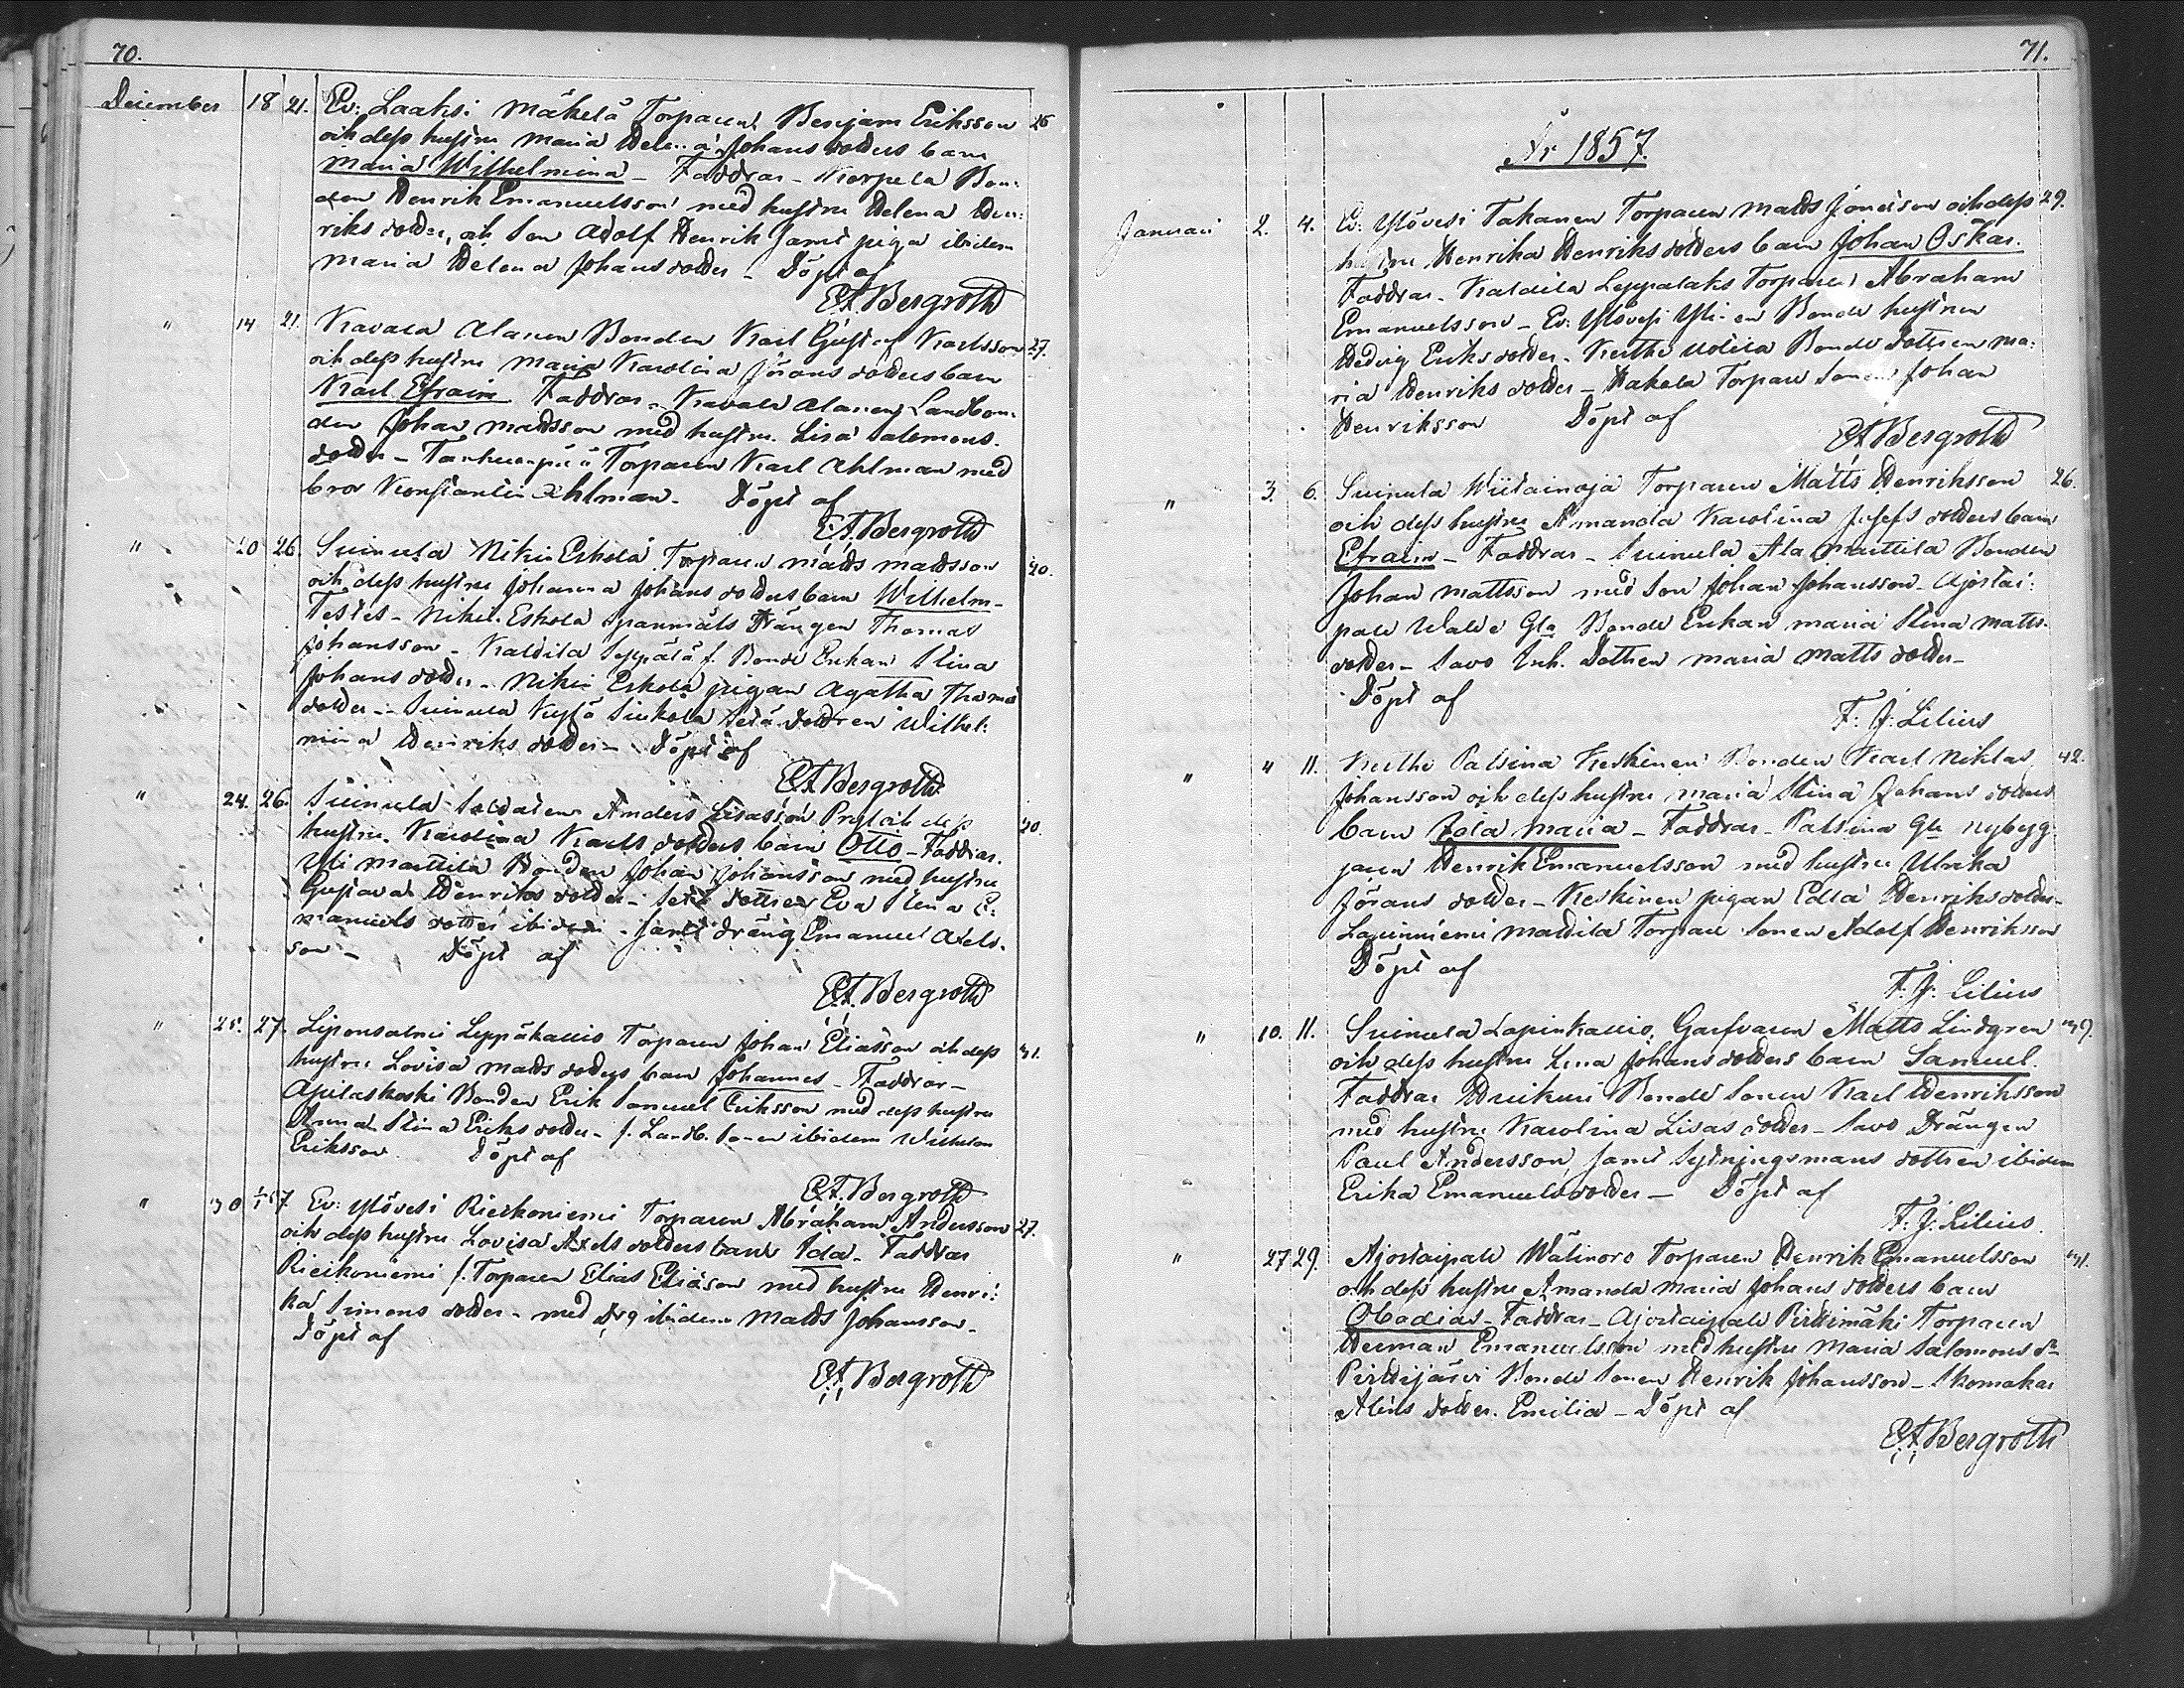 70.
December 18 21. Ev: Laaksi Mäkelä Torparen Benjam Eriksson 26
och dess hustru Maria Helena Johans dotters barn
Maria Wilhelmina – Faddrar – Korpela Bon:
den Henrik Emanuelsson med hustru Helena Hen:
riks dotter, och Son Adolf Henrik samt piga ibidem
Maria Helena Johans dotter – Döpt af
E.A. Bergroth
" 14 21. Kavala Alanen Bonden Karl Gustaf Karlsson 27.
och dess hustru Maria Karolina Jörans dotters barn
Karl Efraim Faddrar – Kavala Alanen Landbon:
den Johan Mattsson med hustru Lisa Salomons
dotter – Torparen Karl Ahlman med
bror Konstantin Ahlman. Döpt af
E.A. Bergroth
" 20 26. Suinula Niku Eskola Torparen Matts Mattsson 40.
och dess hustru Johanna Johans dotters barn Wilhelm –
Testes – Niku Eskola Spannmåls Drängen Thomas
Johansson – Kaldila Seppälä f. Bonde Enkan Stina
Johans dotter – Niku Eskola pigan Agatha Thomas
dotter – Suinula Kylä Sukola dottren Wilhel:
mina Henriks dotter – Döpt af
E.A. Bergroth
" 24. 26. Suinula Soldaten Anders Lisasson och dess 40.
hustru Karolina Karls dotters barn Otto – Faddrar.
Yli Marttila Bonden Johan Johansson med hustru
Gustava Henriks dotter – dottren Eva Stina E:
manuels dotter ibidem – samt dräng Emanuel Axels.
son – Döpt af
E.A. Bergroth
" 25. 27. Liponsalmi Leppäkallio Torparen Johan Eliasson och dess 41.
hustru Lovisa Matts dotters barn Johannes – Faddrar –
Apilaskoski Bonden Erik Samuel Eriksson med dess hustru
Anna Stina Eriks dotter – f. Landb. Sonen ibidem Wilhelm
Eriksson. Döpt af
E.A. Bergroth
" 30 1/1 57. Ev: Ylövesi Rieskoniemi Torparen Abraham Andersson 27.
och dess hustru Lovisa Axels dotters barn Ida – Faddrar
Rieikoniemi f. Torparen Elias Eliason med hustru Henri:
ka Simons dotter – med Drg ibidem Matts Johansson –
Döpt af
E.A. Bergroth
71.
År 1857.
Januari 2. 4. Ev: Ylövesi Takanen Torparen Matts Jonesson och dess 29.
hustru Henrika Henriks dotters barn Johan Oskar.
Faddrar – Kaldila Leppälaks Torparen Abraham
Emanuelsson – Ev: Ylövesi Yli-en Bonde hustrun
Hedvig Eriks dotter – Keithi Uotila Bonde dottren Ma:
ria Henriks dotter – Hakala Torpare Sonen Johan
Henriksson Döpt af
E.A. Bergroth
" 3. 6. Suinula Wiitainoja Torparen Matts Henriksson 26.
och dess hustru Amanda Karolina Josefs dotters barn
Efraim – Faddrar – Suinula Ala Marttila Bonden
Johan Mattsson med Son Johan Johansson – Ajostai:
pale Gla Bonde Enkan Maria Stina Matts
dotter – Savo Inh. Dottren Maria Matts dotter –
Döpt af
F. J. Lilius
" " 11. Keithi Palsina Keskinen Bonden Karl Niklas 42.
Johansson och dess hustru Maria Stina Johans dotters
barn Ida Maria – Faddrar – Palsina Gla nybyg
jaren Henrik Emanuelsson med hustru Ulrika
Jörans dotter – Keskinen pigan Edla Henriks dotter –
Lapinniemi Mattila Torpare Sonen Adolf Henriksson
Döpt af
F. J. Lilius
" 10. 11. Suinula Lapinkallio Garfvaren Matts Lindgren 49.
och dess hustru Lena Johans dotters barn Samuel.
Faddrar Bonde Sonen Karl Henriksson
med hustru Karolina Lisas dotter – Savo Drängen
Paul Andersson, samt Sytningsmans dottren ibidem
Erika Emanuels dotter – Döpt af
F. J. Lilius.
" 27 29. Ajostaipale Wälinoro Torparen Henrik Emanuelsson 41.
och dess hustru Amanda Maria Johans dotters barn
Obadias – Faddrar – Ajostaipale Pirttimäki Torparen
Herman Emanuelsson med hustru Maria Salomons dr
Pirttijärvi Bonde Sonen Henrik Johansson – Skomakar
Aléns dotter. Emilia – Döpt af
E.A. Bergroth